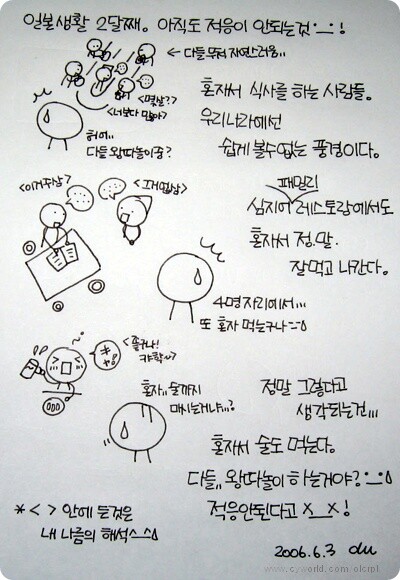 일본생활 2달째. 아직도 적응이 안되는것 -_-!
← 다들 무척 자연스러움..
<몇살??>
<너보다 많아?>
허어..
다들 왕따놀이중?
혼자서 식사를 하는 사람들.
우리나라에선
쉽게 볼수없는 풍경이다.
<이거주삼>
<그거얌삼>
패밀리
심지어 레스토랑에서도
혼자서 정.말.
잘먹고 나간다.
4명자리에서...
또 혼자 먹는구나
<좋구나!
캬학~>
캬!
혼자.. 술까지
마시는거냐..?
정말 그렇다고
생각되는건...
혼자서 술도 먹는다.
다들,, 왕따놀이 하는거야?
적응안된다고 X_X!
* < > 안에 든것은
내 나름의 해석^^
2006.6.3 du
www.cyworld.com/olcrpl